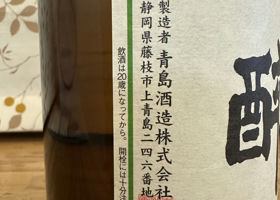 製造者 青島酒造株式会社
静岡県藤枝市上青島二四六番地
飲酒は20歳になってから。開栓には十分注